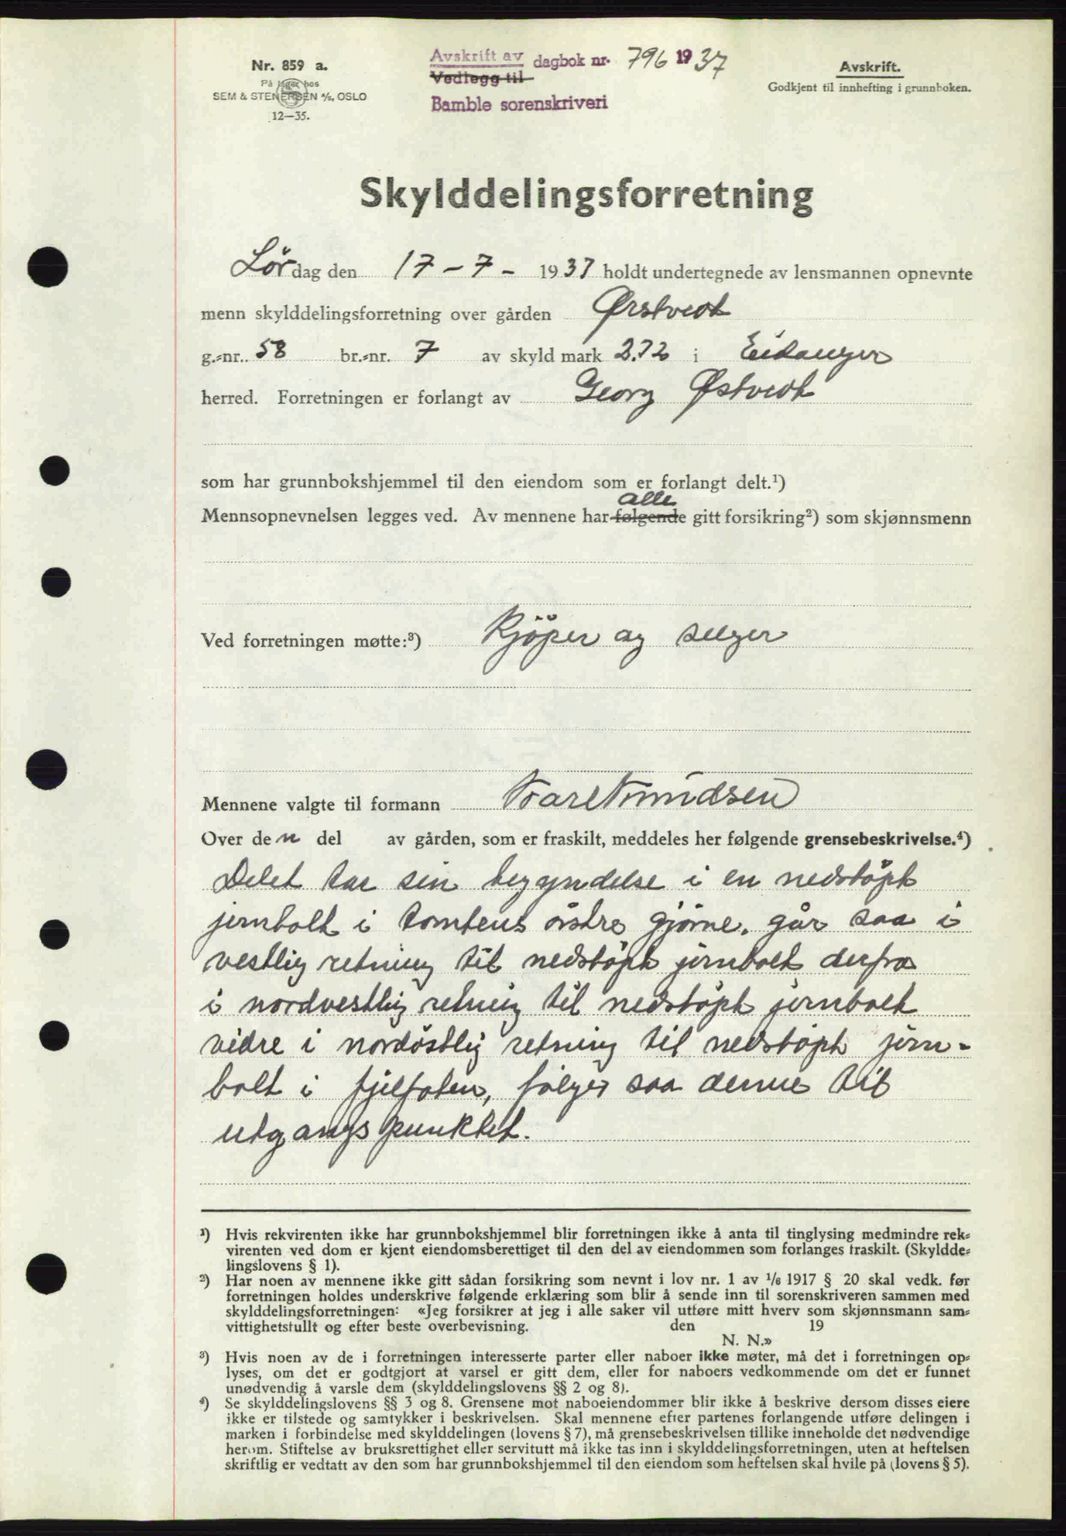 Nr. 859 a.
På lager hos
SEM & STENERSEN A/S, OSLO
12—35.
Avskrift av dagbok nr. 796 1937
Vedlegg til
Bamble sorenskriveri
Avskrift.
Godkjent til innhefting i grunnboken.
Skylddelingsforretning
Lørdag den 17 - 7 - 1937 holdt undertegnede av lensmannen opnevnte
menn skylddelingsforretning over gården Ørstvedt
g.-nr. 58 br.-nr. 7 av skyld mark 2.72 i Eidanger
herred. Forretningen er forlangt av Georg Østvedt
som har grunnbokshjemmel til den eiendom som er forlangt delt.¹)
alle
Mennsopnevnelsen legges ved. Av mennene har følgende gitt forsikring²) som skjønnsmenn
Ved forretningen møtte:³) Kjöper og selger
Mennene valgte til formann
Over den del av gården, som er fraskilt, meddeles her følgende grensebeskrivelse.⁴)
Delet tar sin begyndelse i en nedstöpt
jernbolt i tomtens östre gjörne. går saa i
vestlig retning til nedstöpt jernbolt derfra
i nordvestlig retning til nedstöpt jernbolt
vidre i nordöstlig retning til nedstöpt jern-
bolt i fjellfoten, fölger saa denne til
utgangspunktet.
¹) Hvis rekvirenten ikke har grunnbokshjemmel blir forretningen ikke å anta til tinglysing medmindre rek-
virenten ved dom er kjent eiendomsberettiget til den del av eiendommen som forlanges fraskilt. (Skyldde-
lingslovens § 1).
²) Har noen av mennene ikke gitt sådan forsikring som nevnt i lov nr. 1 av 1/6 1917 § 20 skal vedk. før
forretningen holdes underskrive følgende erklæring som blir å sende inn til sorenskriveren sammen med
skylddelingsforretningen: «Jeg forsikrer at jeg i alle saker vil utføre mitt hverv som skjønnsmann sam-
vittighetsfullt og efter beste overbevisning. den 19
N. N.»
³) Hvis noen av de i forretningen interesserte parter eller naboer ikke møter, må det i forretningen op-
lyses, om det er godtgjort at varsel er gitt dem, eller for naboers vedkommende om det er funnet
unødvendig å varsle dem (skylddelingslovens §§ 2 og 8).
⁴) Se skylddelingslovens §§ 3 og 8. Grensene mot naboeiendommer blir ikke å beskrive dersom disses eiere
ikke er tilstede og samtykker i beskrivelsen. Skal mennene efter partenes forlangende utføre delingen i
marken i forbindelse med skylddelingen (lovens § 7), må grensebeskrivelsen tillike inneholde det nødvendige
herom. Stiftelse av bruksrettighet eller servitutt må ikke tas inn i skylddelingsforretningen, uten at heftelsen
skriftlig er vedtatt av den som har grunnbokshjemmel til den eiendom som heftelsen skal hvile på (lovens § 5).